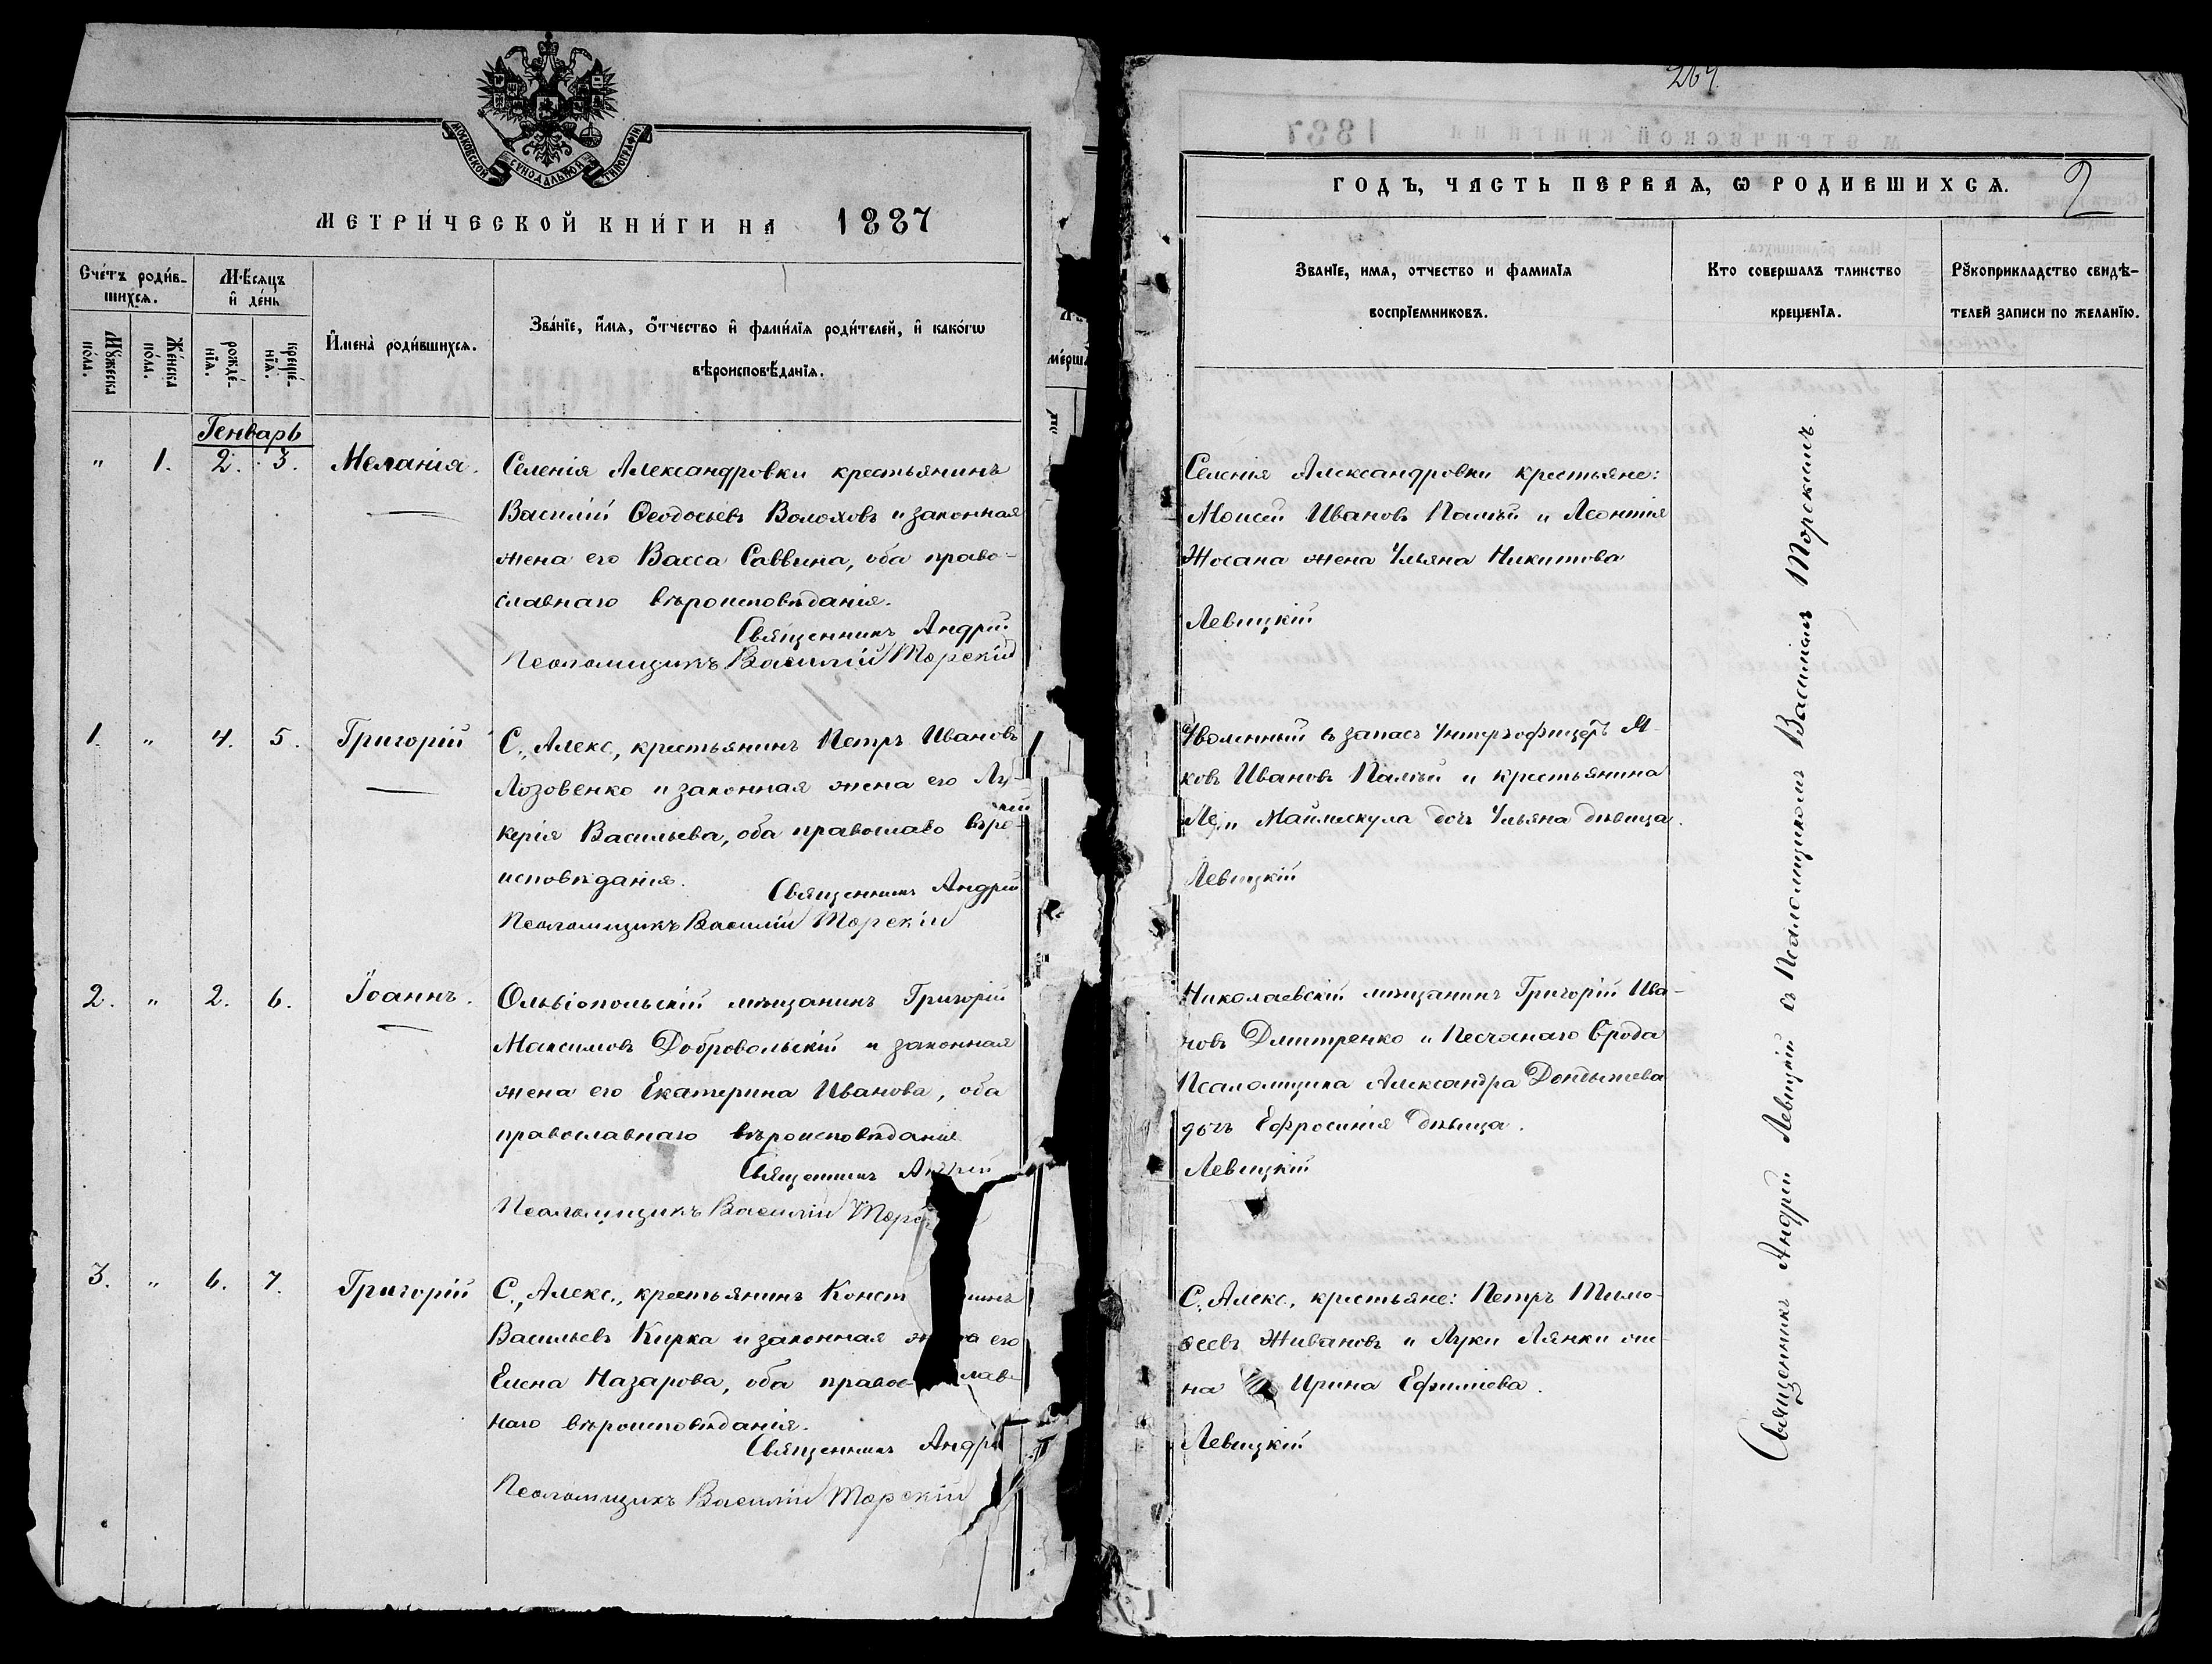 МОСКОВСКОЙ СѴНОДАЛЬНОЙ ТИПОГРАФІИ
МЕТРИ́ЧЕСКОЙ КНИ́ГИ НА 1887
Сче́тъ роди́в-
шихсѧ.
Мѣ́сѧцъ
и҆ де́нь
И҆мена̀ роди́вшихсѧ.
Зва́нїе, и҆́мѧ, ѻ҆́тчество и҆ фами́лїѧ роди́телей, и҆ како́гѡ
вѣроисповѣ́данїѧ.
Мꙋ́жеска
по́ла.
Же́нска
по́ла.
рожде́-
нїѧ.
креще́-
нїѧ.
Генварь
" 1. 2. 3. Меланія. Селенія Александровки крестьянинъ
Василій Ѳеодосьевъ Волоховъ и законная
жена его Васса Саввина, оба право-
славнаго вѣроисповѣданія.
Священникъ Андрей
Псаломщикъ Василій Торскій
1. " 4. 5. Григорій С. Алекс, крестьянинъ Петръ Ивановъ
Лозовенко и законная жена его Лу-
керія Васильева, оба
исповѣданія.
Священникъ Андрей
Псаломщикъ Василій Торскій
2. " 2. 6. Іоаннъ. Ольвіопольскій мѣщанинъ Григорій
Максимовъ Добровольскій и законная
жена его Екатерина Иванова, оба
православнаго вѣроисповѣданія
Священникъ Андрей
Псаломщикъ Василій Торс
3. " 6. 7. Григорій С. Алекс., крестьянинъ Конст инъ
Васильевъ Кирка и законная жена его
Елена Назарова, оба правос- лав-
наго вѣроисповѣданія.
Священникъ Андре
Псаломщикъ Василій Торскій
264
ГОДЪ, ЧАСТЬ ПЕРВАѦ, Ѡ РОДИВШИХСѦ. 2
Званїе, имѧ, отчество и фамилїѧ
воспрїемниковъ.
Кто совершалъ таинство
крещенїѧ.
Рꙋкоприкладство свидѣ-
телей записи по желанїю.
Селенія Александровки крестьяне:
Моисей Ивановъ Палій и Леонтія
Жосана жена Ульяна Никитова
Левицкій
Уволенный въ запасъ Унтеръофицеръ Я-
ковъ Ивановъ Палій и крестьянина
Маймескула дочь Ульяна дѣвица.
Левицкій
Николаевскій мѣщанинъ Григорій Ива-
новъ Дмитренко и Песчанаго Брода
Псаломщика Александра Дондышева
дочь Ефросинія дѣвица.
Левицкій
С. Алекс., крестьяне: Петръ Тимо-
ѳеевъ Живановъ и Луки Лянки
на Ирина Ефимієва.
Левицкій
Священникъ Андрей Левицкій съ Псаломщикомъ Василіемъ Торскимъ.